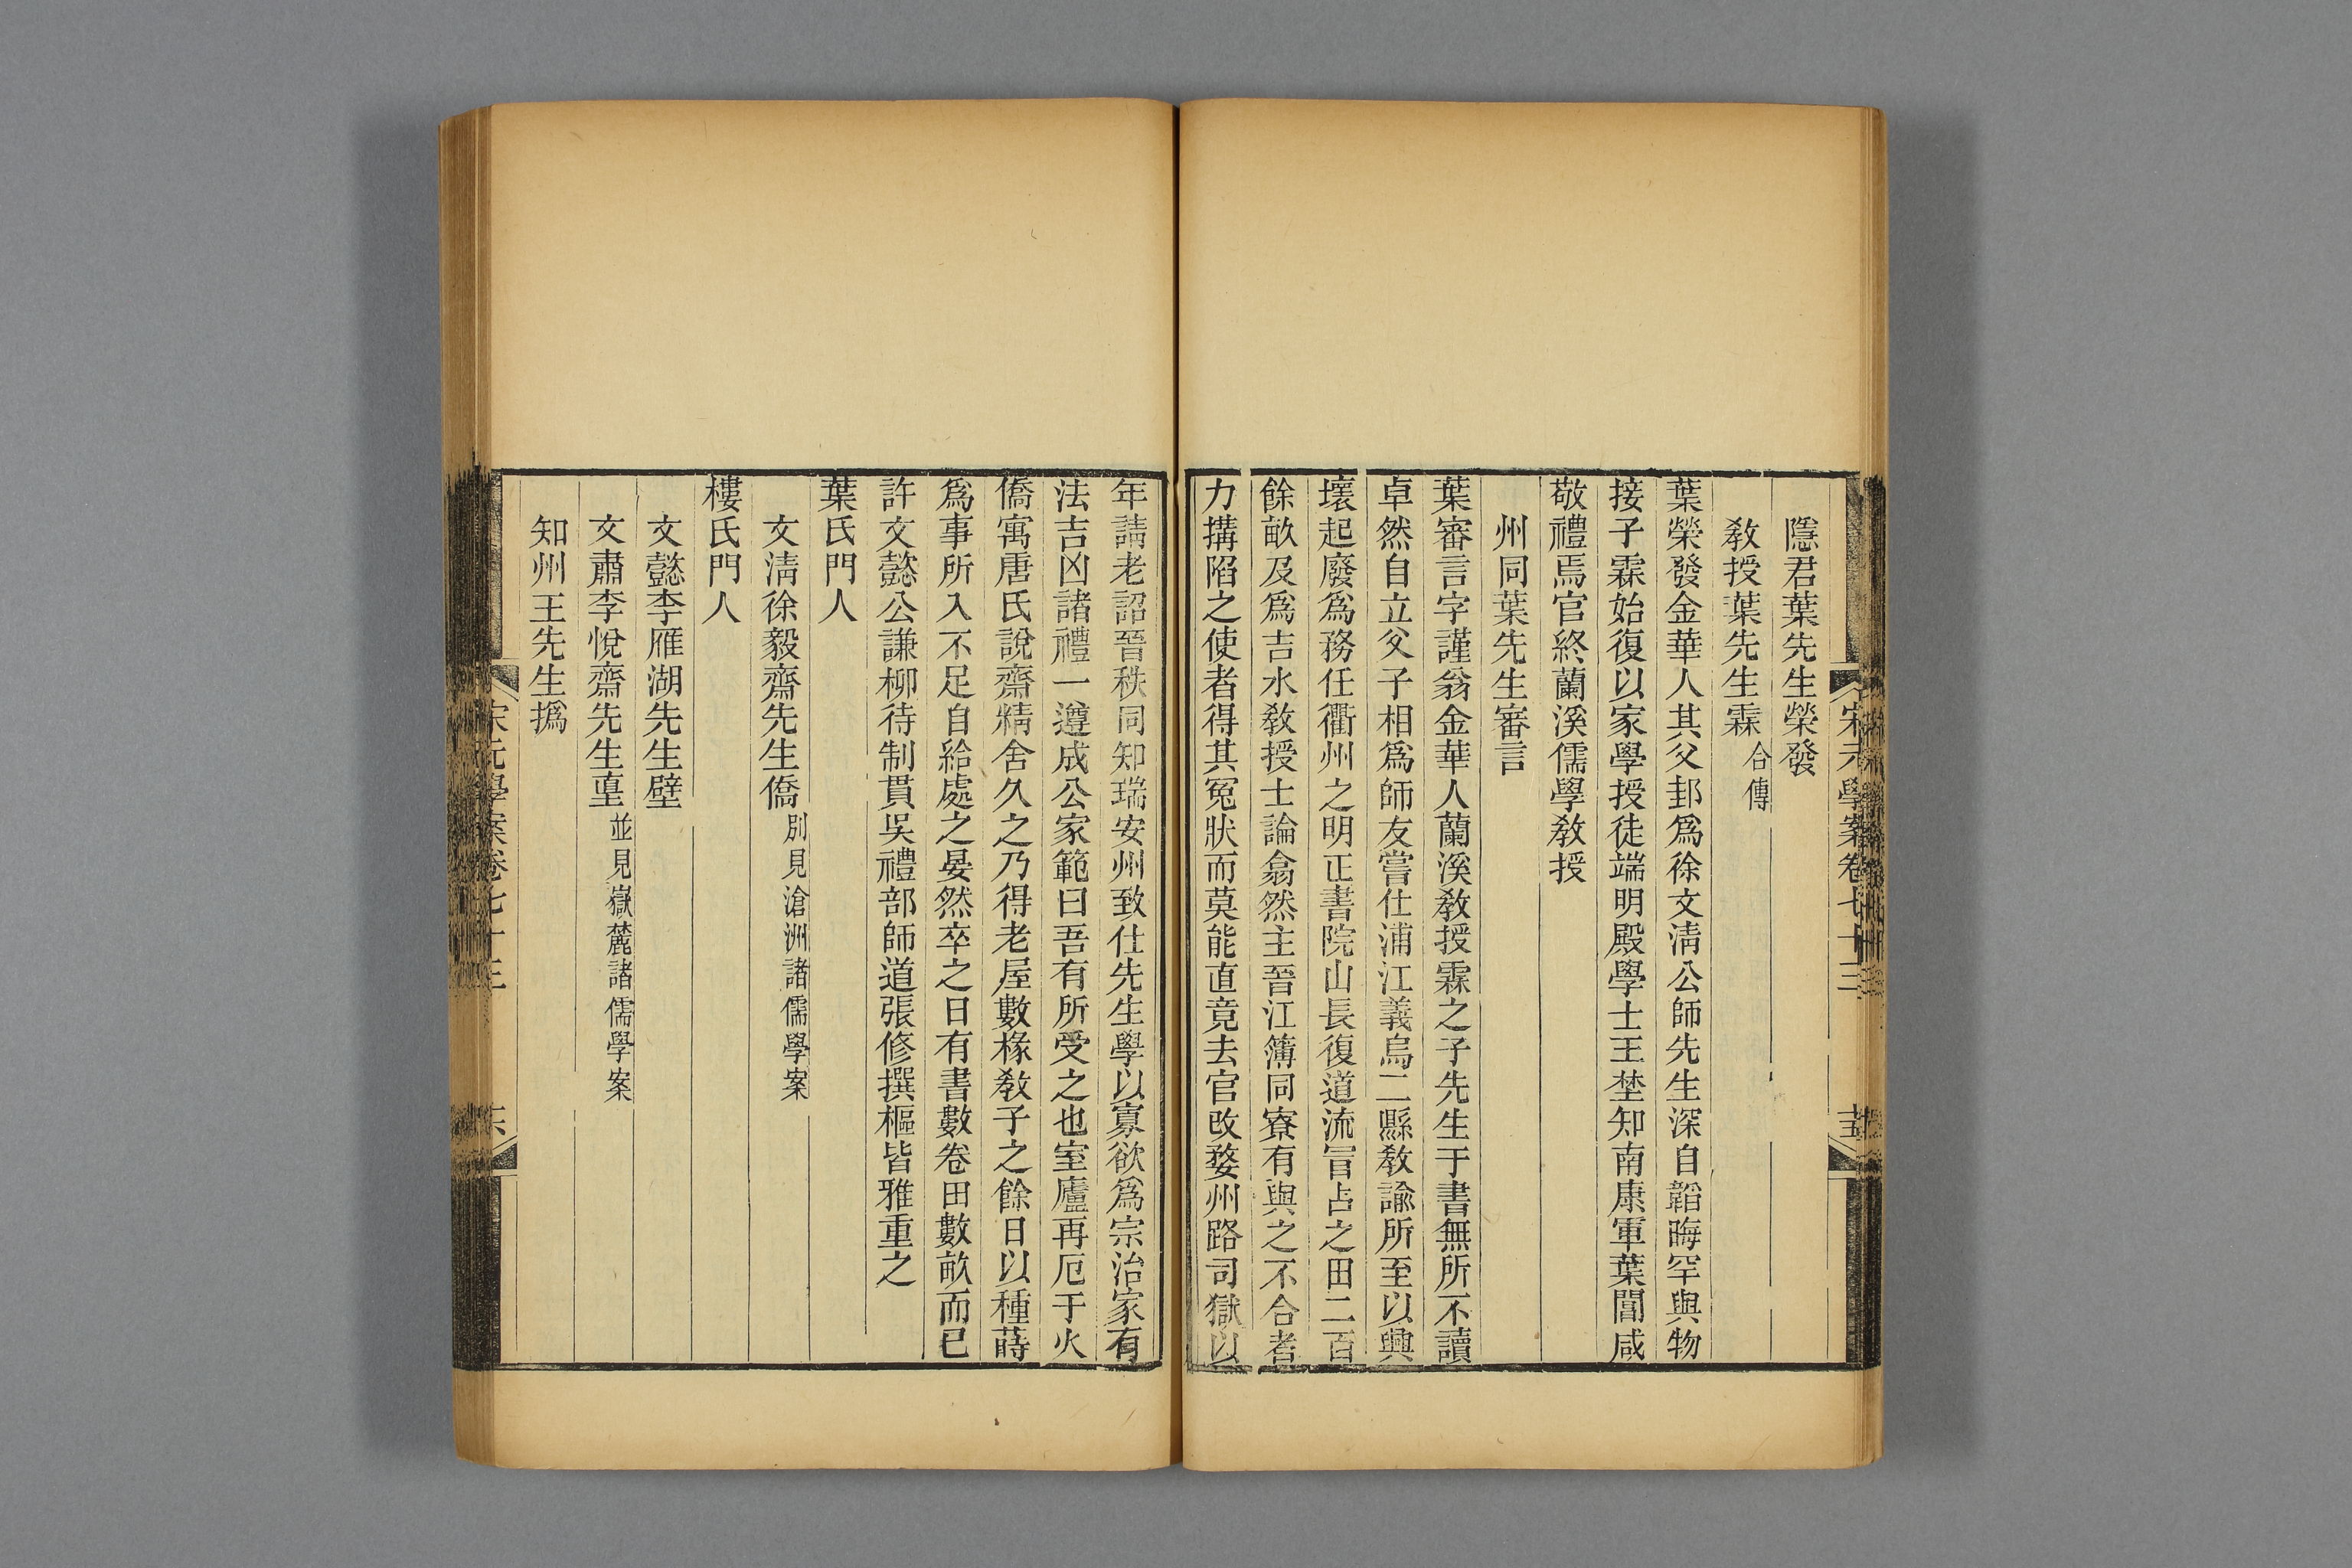 隱君葉先生榮發
敎授葉先生霖合傳
葉榮發金華人其父邽爲徐文淸公師先生深自韜晦罕與物
接子霖始復以家學授徒端明殿學士王埜知南康軍葉誾咸
敬禮焉官終蘭溪儒學敎授
州同葉先生審言
葉審言字謹翁金華人蘭溪敎授霖之子先生于書無所不讀
卓然自立父子相爲師友嘗仕浦江義烏二縣敎諭所至以興
壞起廢爲務任衢州之明正書院山長復道流冐占之田二百
餘畝及爲吉水敎授士論翕然主晉江簿同寮有與之不合者
力搆陷之使者得其冤狀而莫能直竟去官改婺州路司獄以
年請老詔晉秩同知瑞安州致仕先生學以寡欲爲宗治家有
法吉凶諸禮一遵成公家範曰吾有所受之也室廬再厄于火
僑寓唐氏說齋精舍久之乃得老屋數椽敎子之餘日以種蒔
爲事所入不足自給處之晏然卒之日有書數卷田數畝而已
許文懿公謙柳待制貫吳禮部師道張修撰樞皆雅重之
葉氏門人
文淸徐毅齋先生僑別見滄洲諸儒學案
樓氏門人
文懿李雁湖先生壁
文肅李悅齋先生𡌴並見嶽麓諸儒學案
知州王先生撝
宋元學案卷七十三